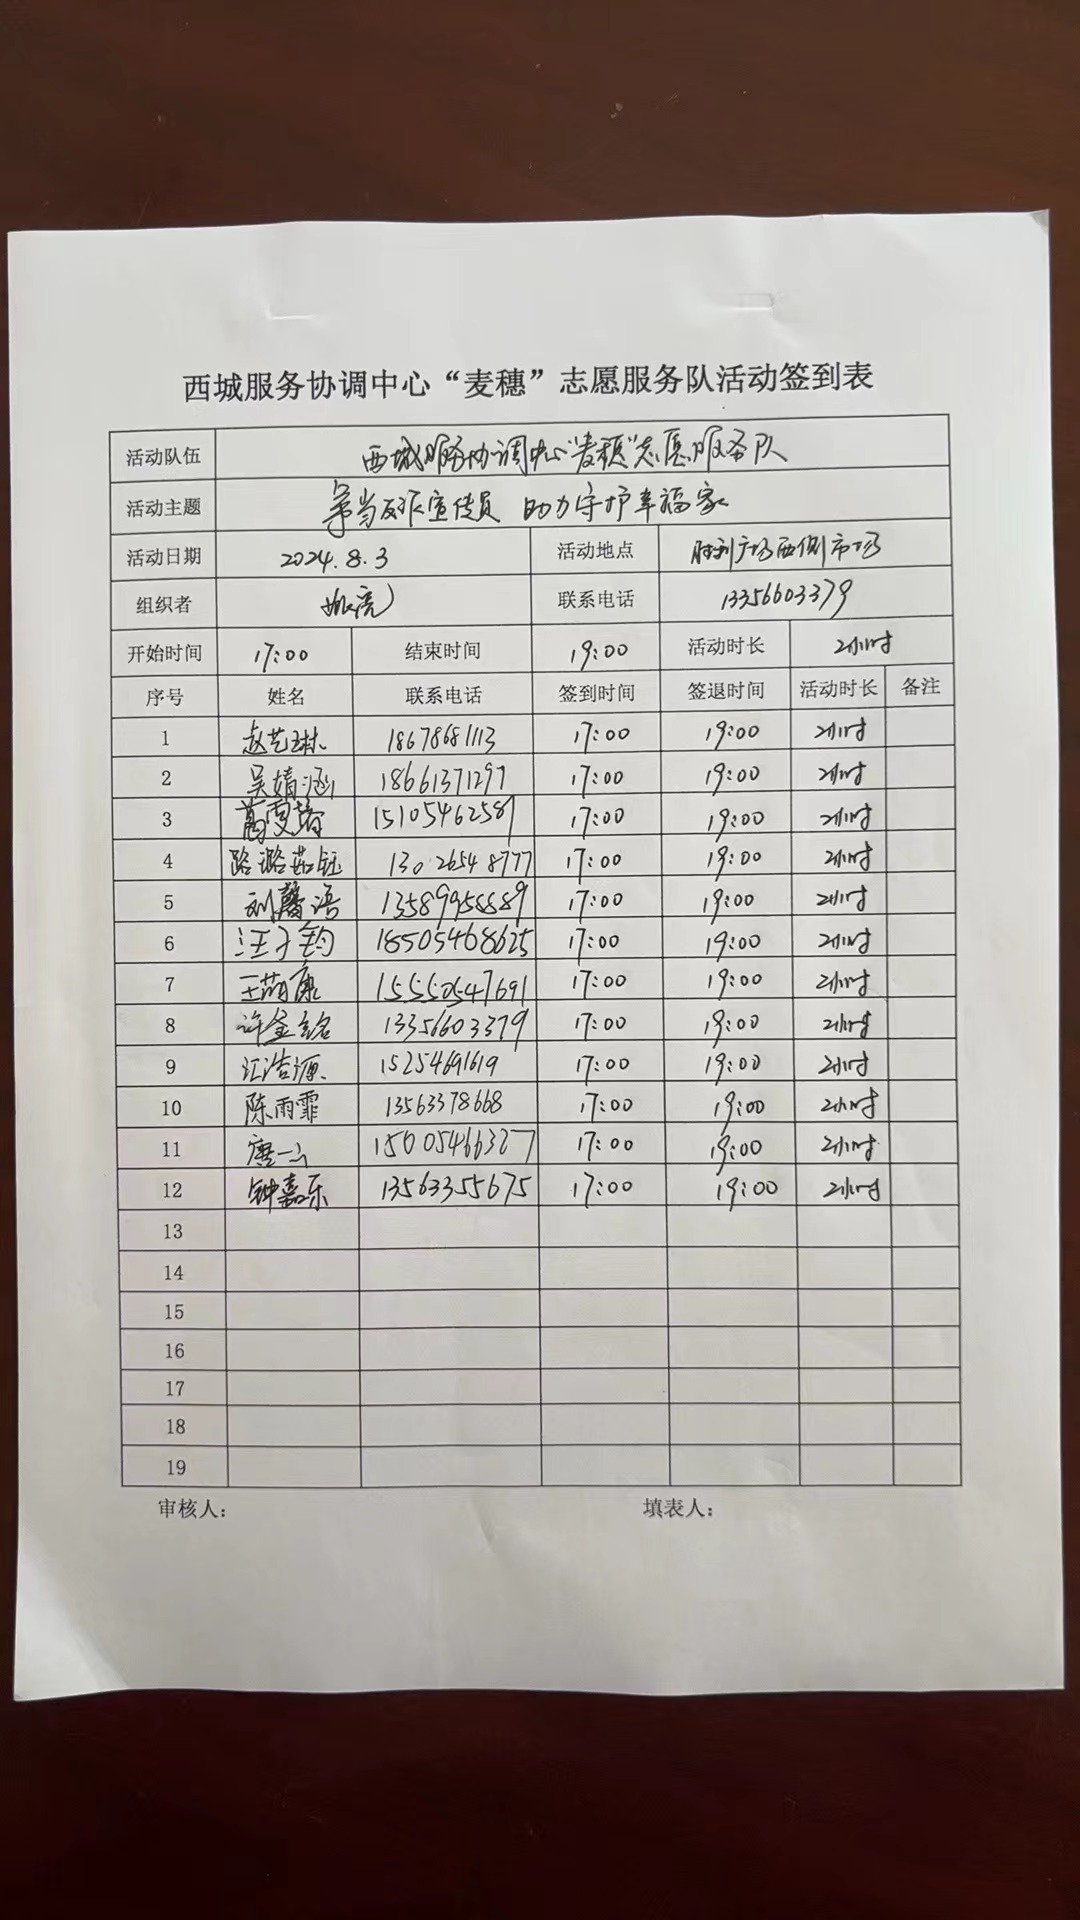 西城服务协调中心“麦穗”志愿服务队活动签到表
活动队伍 西城服务协调中心“麦穗”志愿服务队
活动主题 争当反诈宣传员 助力守护幸福家
活动日期 2024.8.3 活动地点 胜利广场西侧市场
组织者 联系电话 13356603379
开始时间 17:00 结束时间 19:00 活动时长 2小时
序号 姓名 联系电话 签到时间 签退时间 活动时长 备注
1 赵艺琳 18678681113 17:00 19:00 2小时
2 吴婧涵 18661371297 17:00 19:00 2小时
3 15105462589 17:00 19:00 2小时
4 路潞茹钰 130 2654 8777 17:00 19:00 2小时
5 刘馨语 13589958889 17:00 19:00 2小时
6 汪子钧 18505468625 17:00 19:00 2小时
7 王荫康 15550547691 17:00 19:00 2小时
8 许金铭 13356603379 17:00 19:00 2小时
9 汇浩源 15254691619 17:00 19:00 2小时
10 陈雨霏 13563378668 17:00 19:00 2小时
11 唐一 15005466327 17:00 19:00 2小时
12 钟嘉乐 13563355675 17:00 19:00 2小时
13
14
15
16
17
18
19
审核人： 填表人：